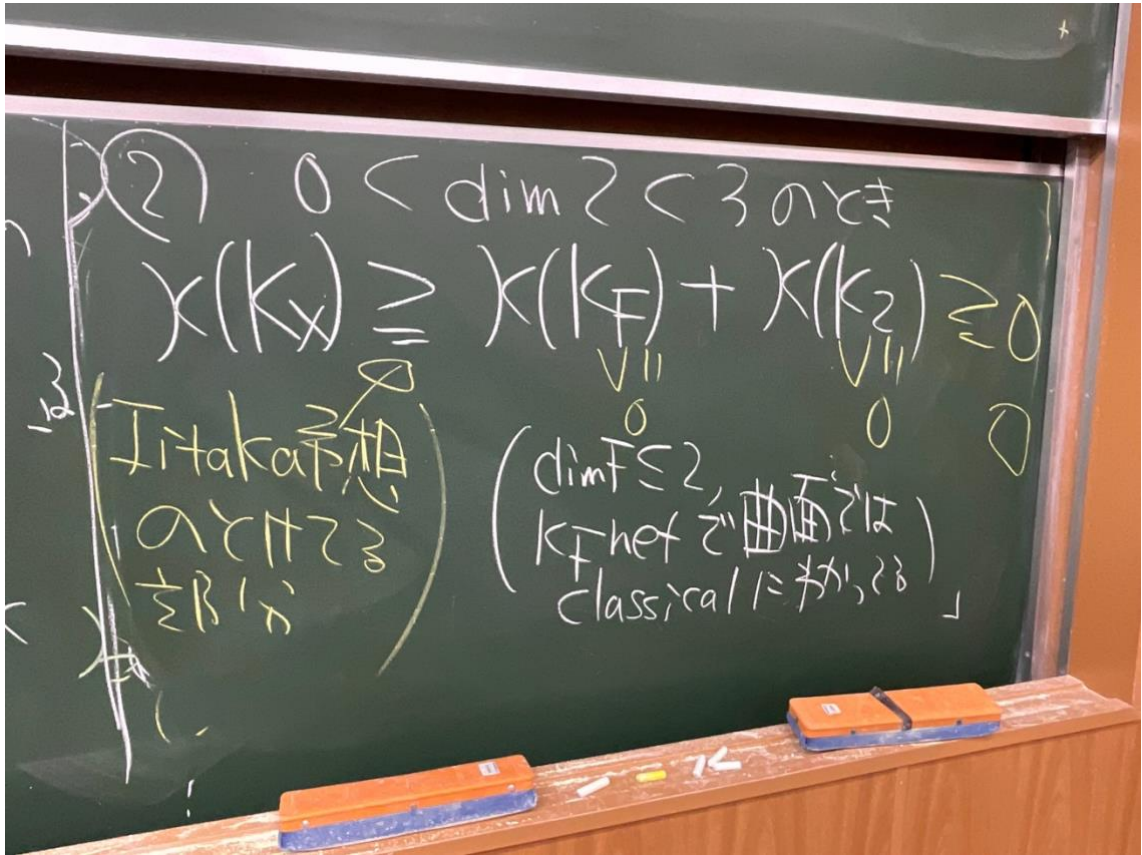 ② 0 < dim Z < 3 のとき
κ(K_X) ≧ κ(K_F) + κ(K_Z) ≧ 0
∨|| ∨||
0 0 0
(Iitaka予想
のとけてる
部分)
(dimF≦2,
K_F nefで曲面では
classicalにわかってる)」